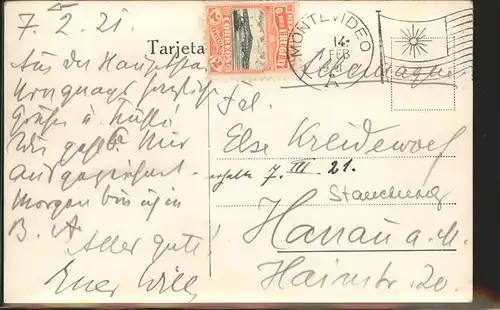 7. 2. 21.
Tarjeta
Aus der Hauptstadt
Uruguays herzliche
Grüße u. Küsse!
Wie geht's? Mir
ausgezeichnet.
Morgen bin ich in
B. A.
Alles gute!
Euer Willy
CORREOS
MONTEVIDEO
14
FEB
A
Alemaque
Frl.
Else Kreidewolf
erhalten 7. III. 21.
Hanau a. M.
Hainstr. 20.